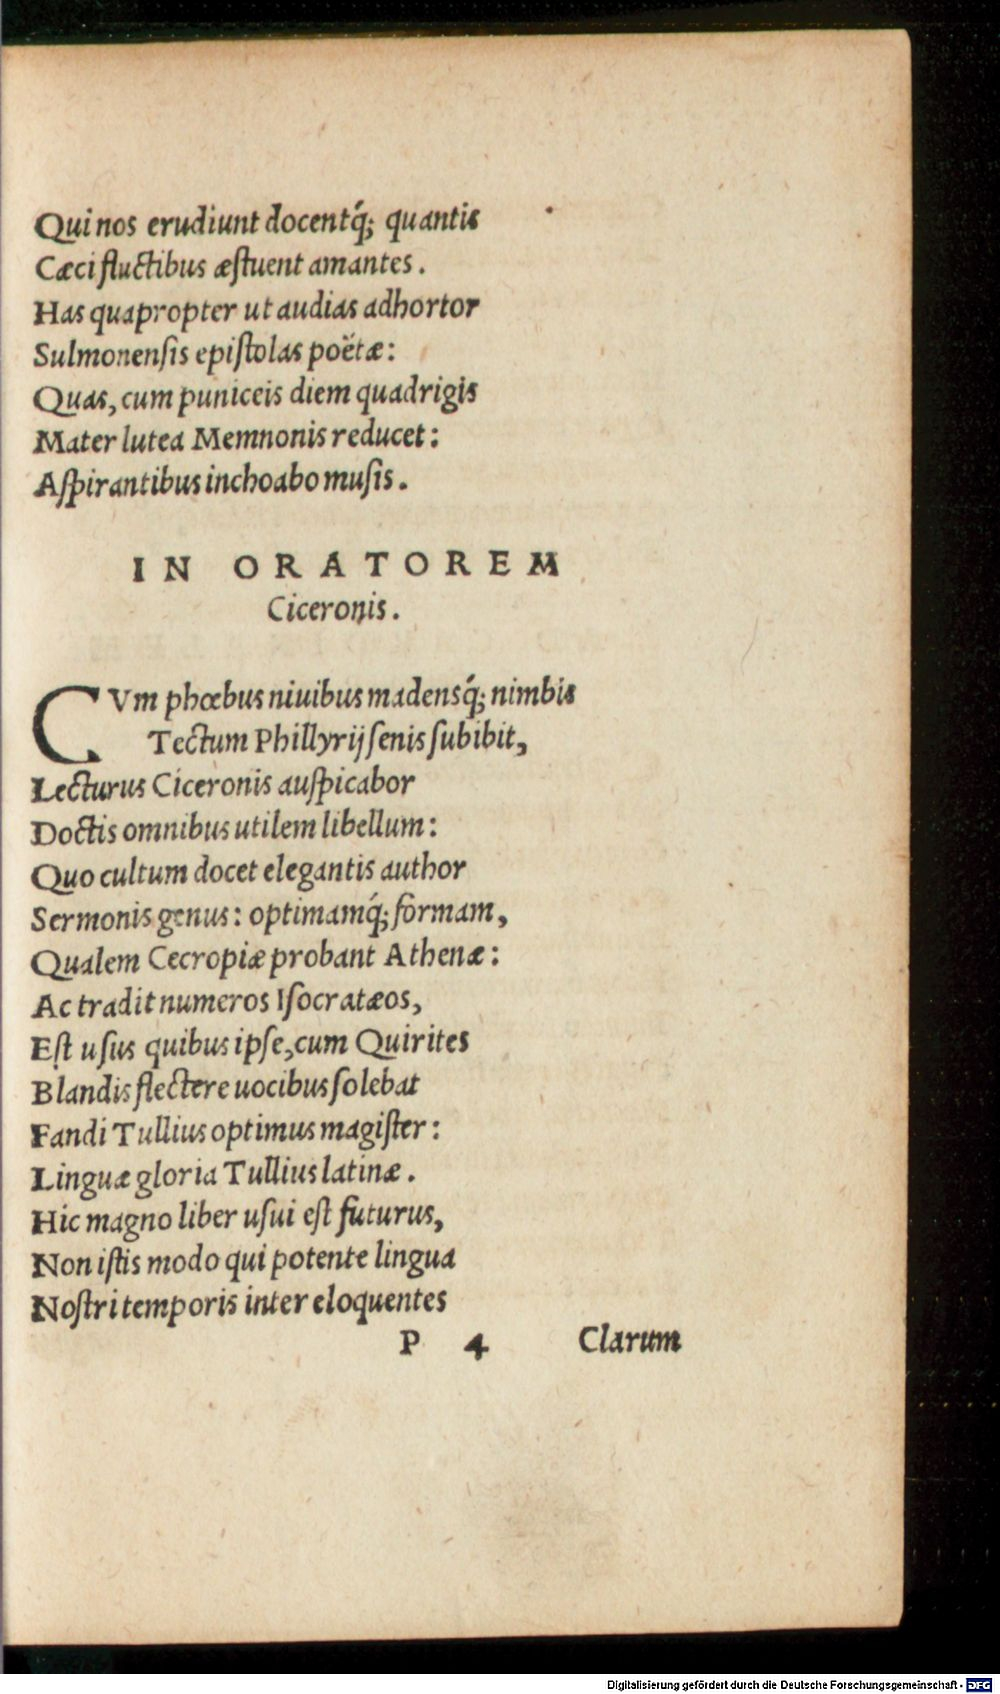 Qui nos erudiunt docentq́; quantis
Cæci fluctibus æſtuent amantes.
Has quapropter ut audias adhortor
Sulmonenſis epiſtolas poëtæ:
Quas, cum puniceis diem quadrigis
Mater lutea Memnonis reducet:
Aſpirantibus inchoabo muſis.
IN ORATOREM
Ciceronis.
CVm phœbus niuibus madensq́; nimbis
Tectum Phillyrij ſenis ſubibit,
Lecturus Ciceronis auſpicabor
Doctis omnibus utilem libellum:
Quo cultum docet elegantis author
Sermonis genus: optimamq́; formam,
Qualem Cecropiæ probant Athenæ:
Ac tradit numeros Iſocratæos,
Eſt uſus quibus ipſe, cum Quirites
Blandis flectere uocibus ſolebat
Fandi Tullius optimus magiſter:
Linguæ gloria Tullius latinæ.
Hic magno liber uſui eſt futurus,
Non iſtis modo qui potente lingua
Noſtri temporis inter eloquentes
P 4 Clarum
Digitalisierung gefördert durch die Deutsche Forschungsgemeinschaft - DFG